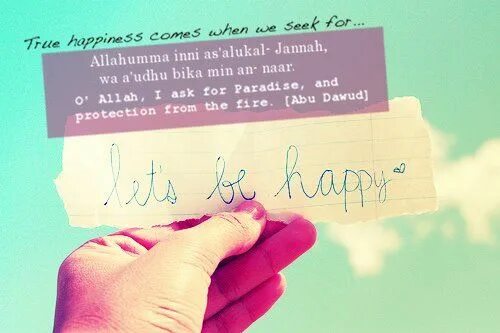 True happiness comes when we seek for...
Allahumma inni as'alukal- Jannah,
wa a'udhu bika min an- naar.
O' Allah, I ask for Paradise, and
protection from the fire. [Abu Dawud]
let's be happy